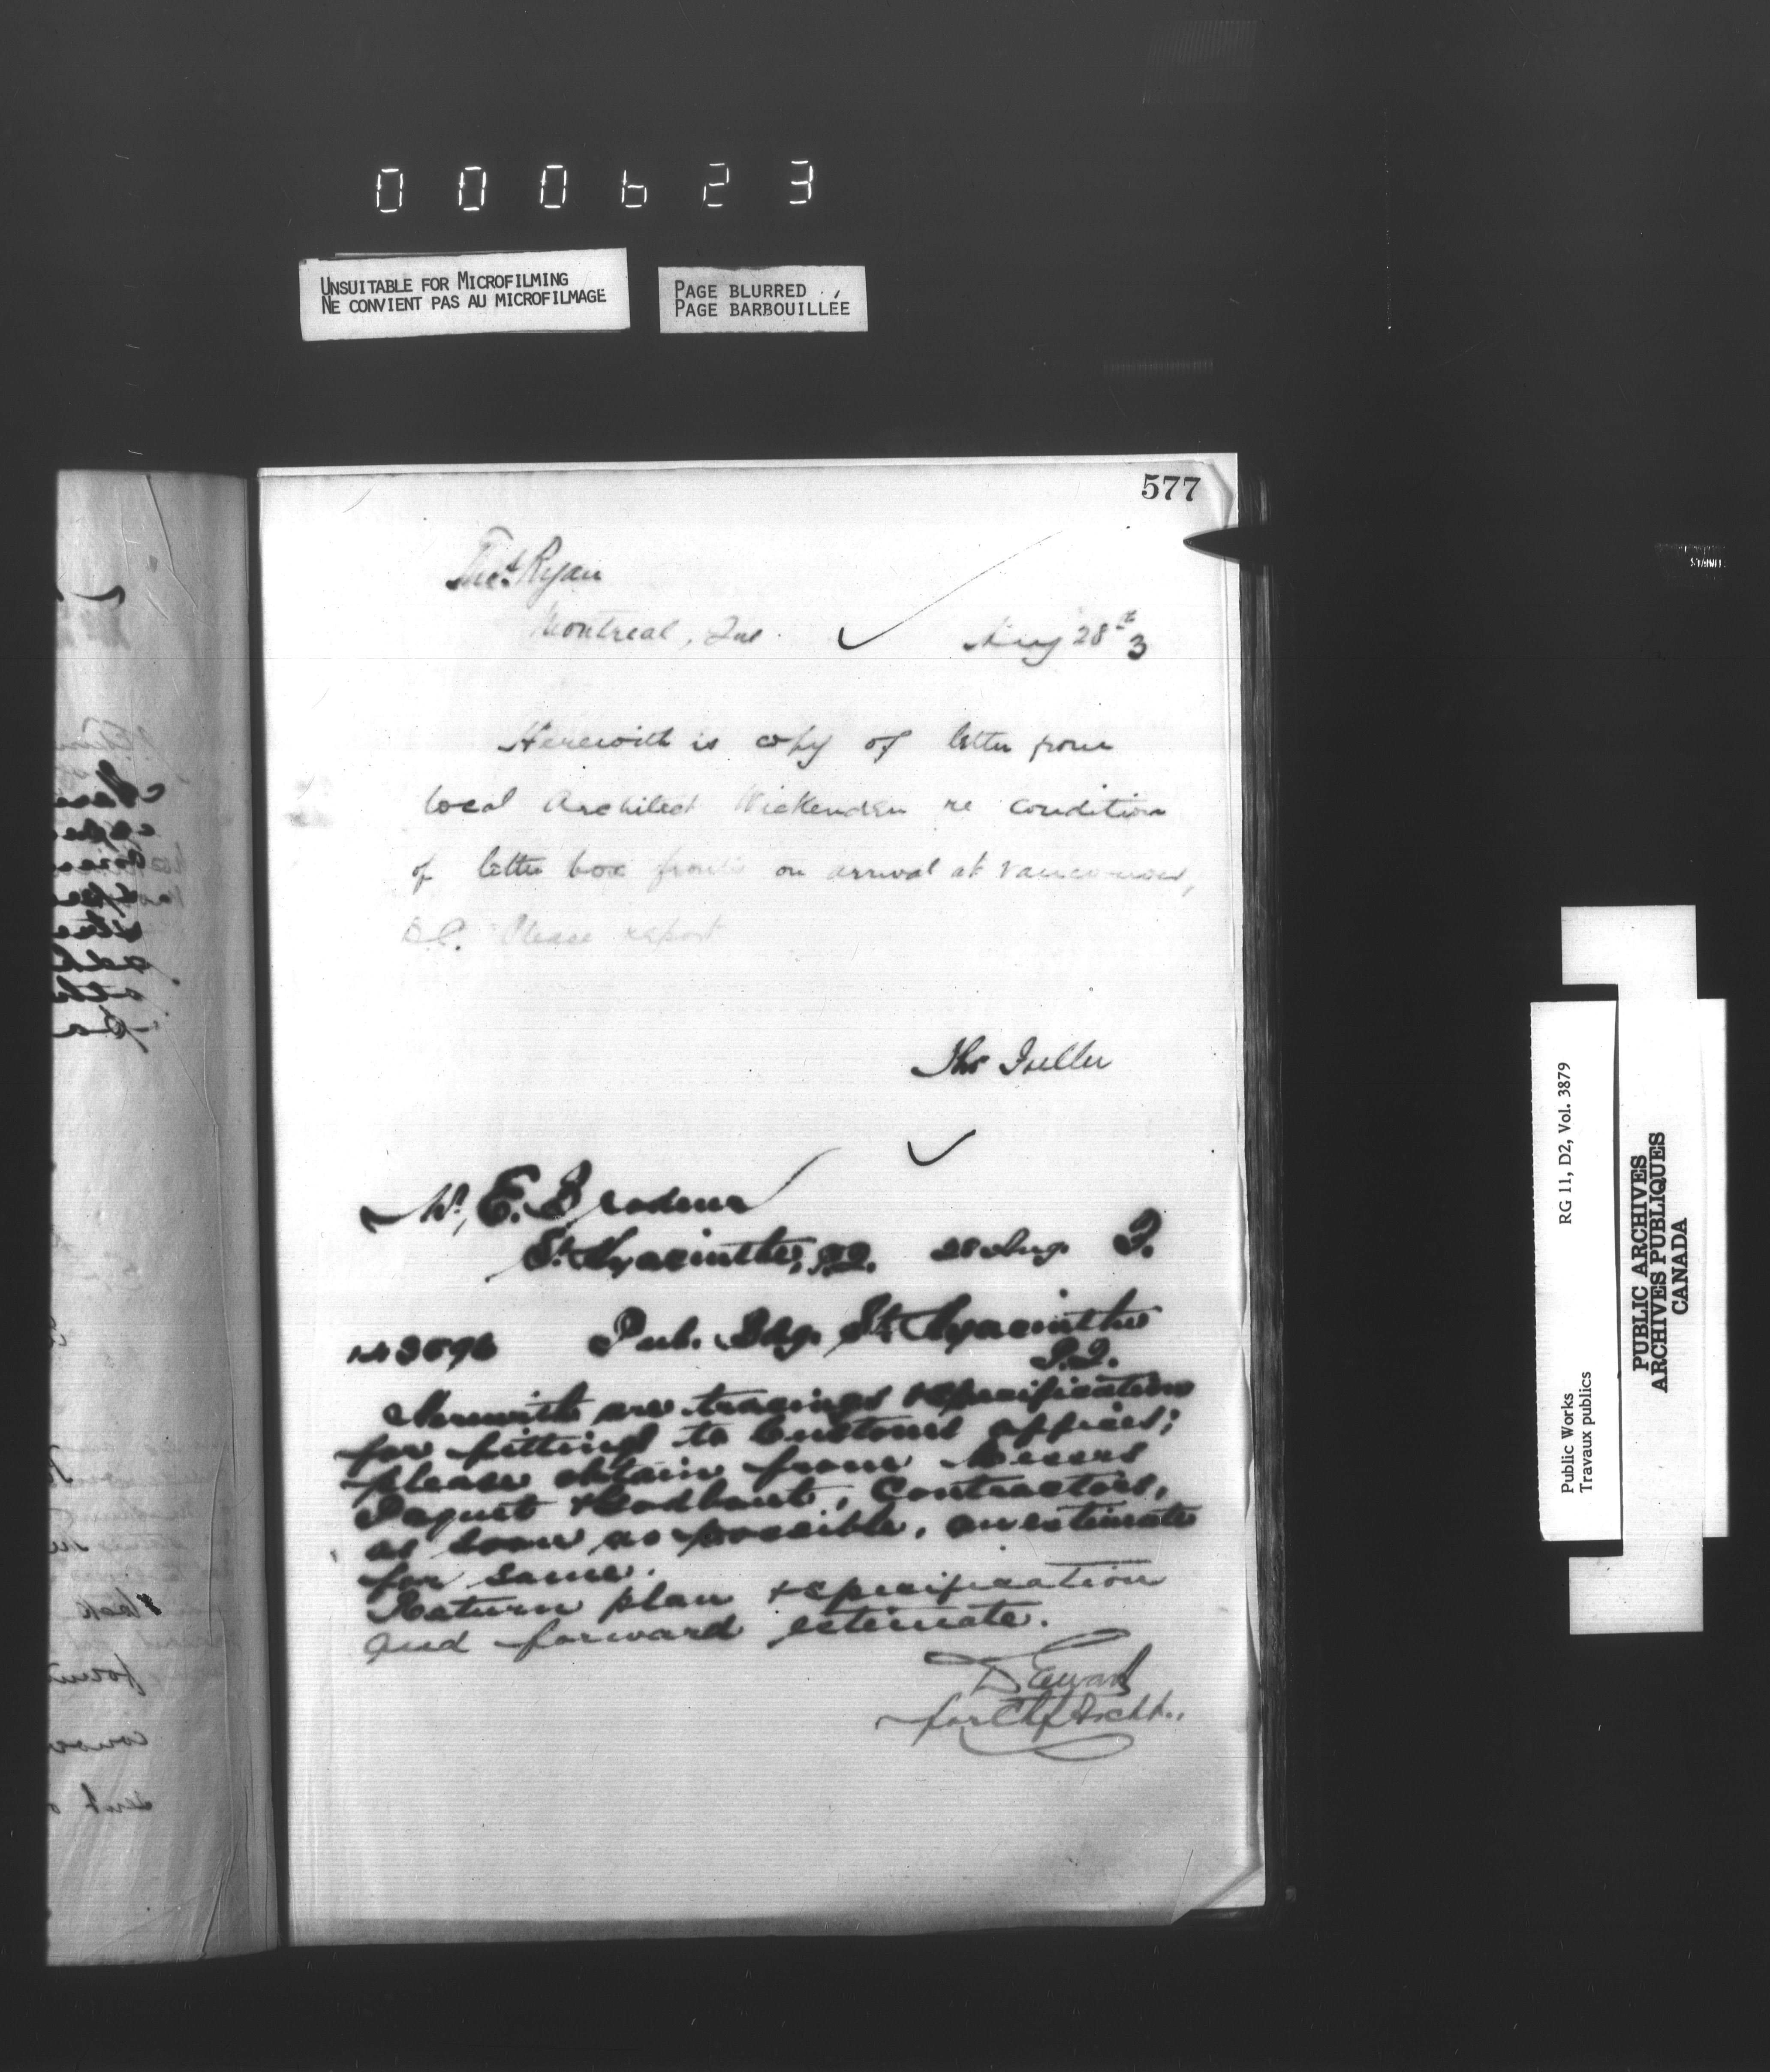 000623
UNSUITABLE FOR MICROFILMING
NE CONVIENT PAS AU MICROFILMAGE
PAGE BLURRED
PAGE BARBOUILLÉE
577
Ryan
Montreal, Que.
28th 3
Herewith is copy of letter from
local Architect Wickenden re condition
of letter box fronts on arrival at Vancouver,
B.C. Please report
Thos Fuller
E. Brodeur
St. Hyacinthe, P.Q. 28 Aug. 3.
Pub. Bdg. St. Hyacinthe
P.Q.
Herewith are tracings & specification
for fittings to Customs offices;
please obtain from Messrs
Paquet & Godbout, Contractors,
as soon as possible, an estimate
for same.
Return plan & specification
and forward estimate.
D Ewart
for Chf Archt.
RG 11, D2, Vol. 3879
Public Works
Travaux publics
PUBLIC ARCHIVES
ARCHIVES PUBLIQUES
CANADA